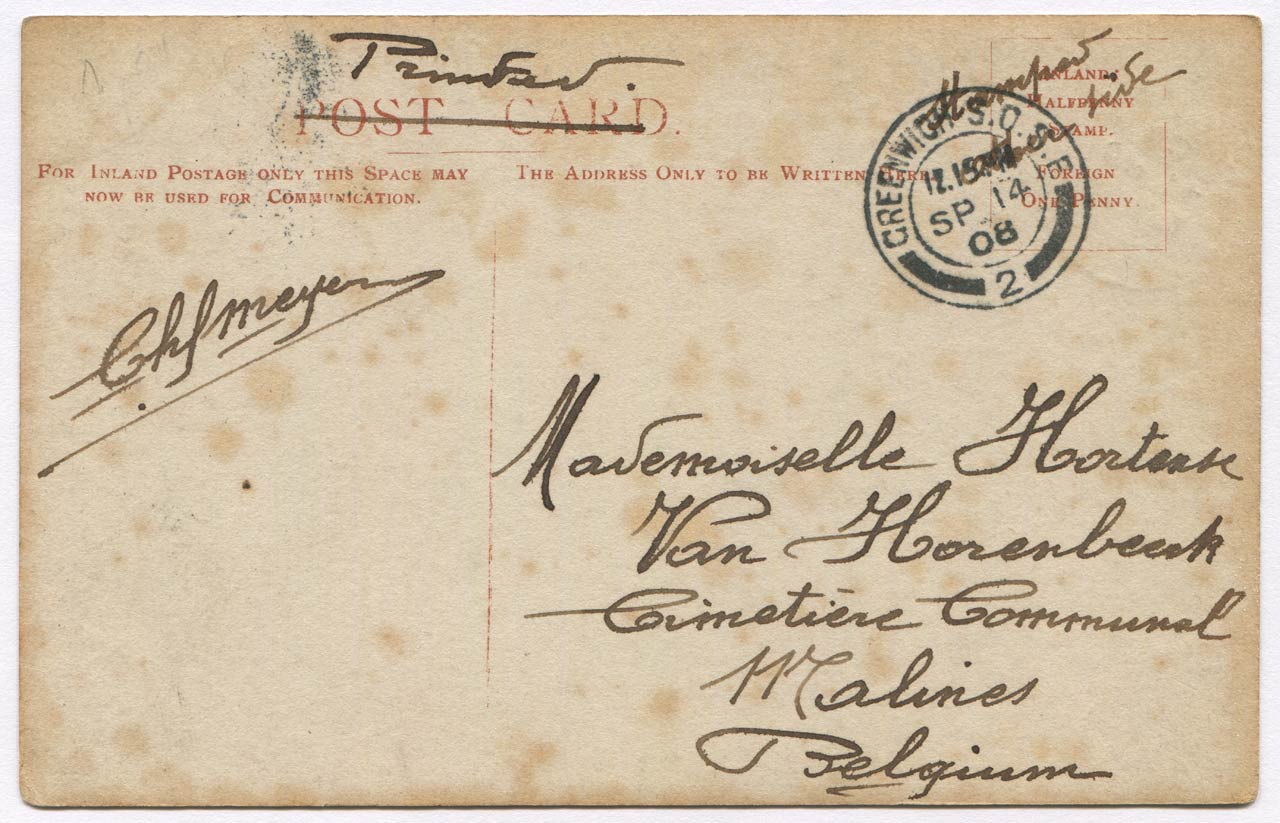 Printed.
POST CARD.
Stamped
other side
INLAND,
HALFPENNY
STAMP.
FOREIGN
ONE PENNY.
FOR INLAND POSTAGE ONLY THIS SPACE MAY
NOW BE USED FOR COMMUNICATION.
THE ADDRESS ONLY TO BE WRITTEN HERE
GREENWICH S.O. S.E.
SP 14
08
2
Mademoiselle Hortense
Van Horenbeeck
Cimetière Communal
Malines
Belgium